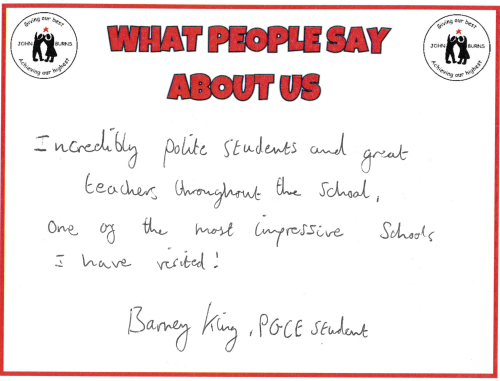 Giving our best
JOHN BURNS
Achieving our highest
WHAT PEOPLE SAY
ABOUT US
Giving our best
JOHN BURNS
Achieving our highest
Incredibly polite students and great
teachers throughout the school,
One of the most impressive schools
I have visited!
Barney King, PGCE student